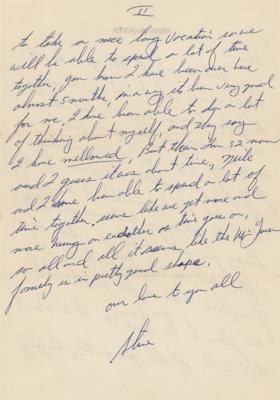 II
to take a nice long vacation so we
will be able to spend a lot of time
together, you know I have been over here
almost 5 months, in a way its been very good
for me, I have been able to do a lot
of thinking about myself, and they say
I have mellowed, But then Im 32 now
and I guess it was about time, Neile
and I have been able to spend a lot of
time together. seems like we get more and
more hung on eachother as time goes on,
so all and all it seems like the Mc Queen
family is in pretty good shape.
our love to you all
Steve